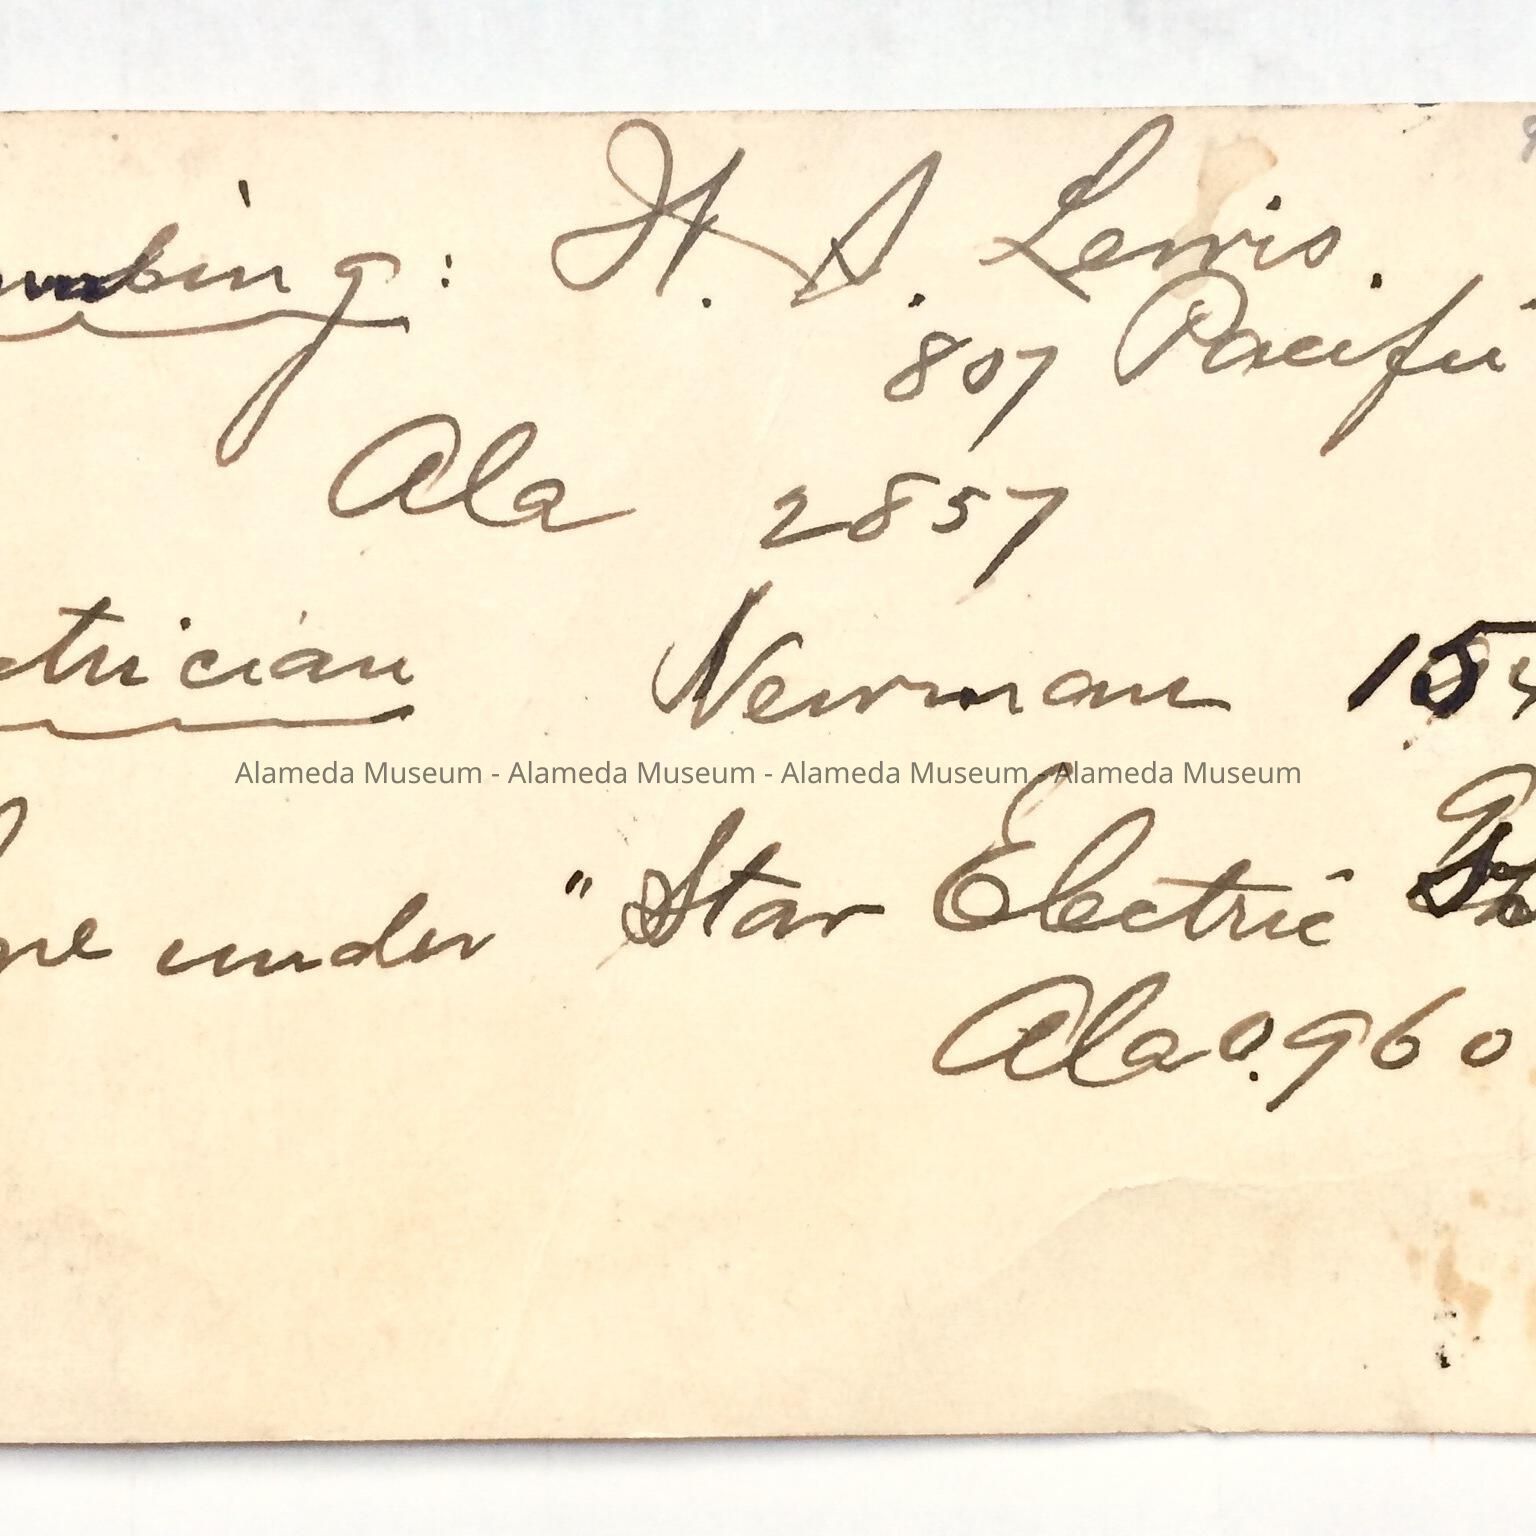 mbing: H. S. Lewis.
807 Pacific
Ala 2857
ctrician Newman 154
Alameda Museum - Alameda Museum - Alameda Museum - Alameda Museum
under "Star Electric
Ala 0.960